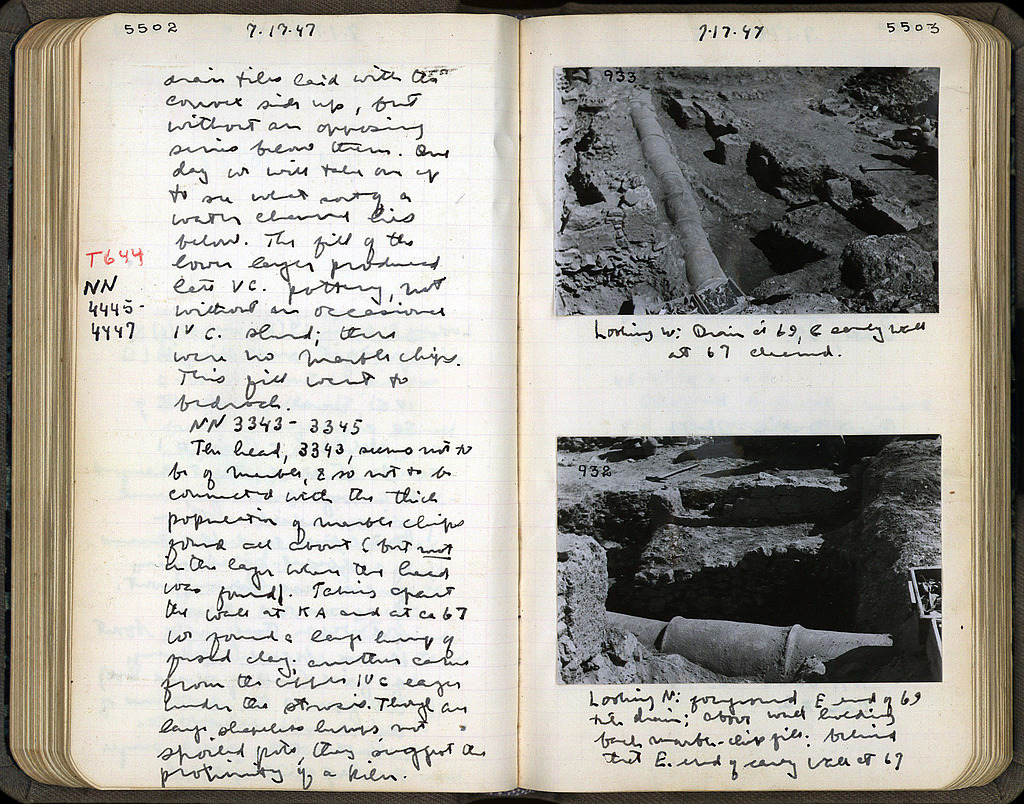 5502
7.17.47
drain tiles laid with the
convex side up, but
without an opposing
series below them. One
day we will take one up
to see what sort of a
water channel lies
below. The fill of the
lower layer produced
late V C. pottery, not
without an occasional
IV C. sherd; there
were no marble chips.
This fill went to
bedrock.
T644
NN
4445-
4447
NN 3343 - 3345
The head, 3343, seems not to
be of marble, & so not to be
connected with the thick
population of marble chips
found all about (but not
in the layer where the head
was found). Taking apart
the wall at KA and at ca 67
we found a large lump of
fused clay; another came
from the upper IV C layer
under the strosis. Though
large shapeless lumps not
spoiled pots, they suggest the
proximity of a kiln.
7.17.47
5503
933
Looking W: Drain at 69, & early wall
at 67 cleared.
932
Looking N: foreground E. end of 69
tile drain; above wall holding
back marble-chip fill; behind
that E. end of early wall at 67